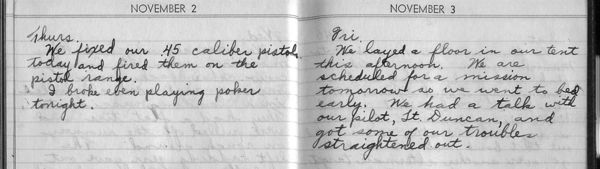 NOVEMBER 2
Thurs.
We fixed our .45 caliber pistols
today and fired them on the
pistol range.
I broke even playing poker
tonight.
NOVEMBER 3
Fri.
We layed a floor in our tent
this afternoon. We are
scheduled for a mission
tomorrow so we went to bed
early. We had a talk with
our pilot, Lt. Duncan, and
got some of our troubles
straightened out.